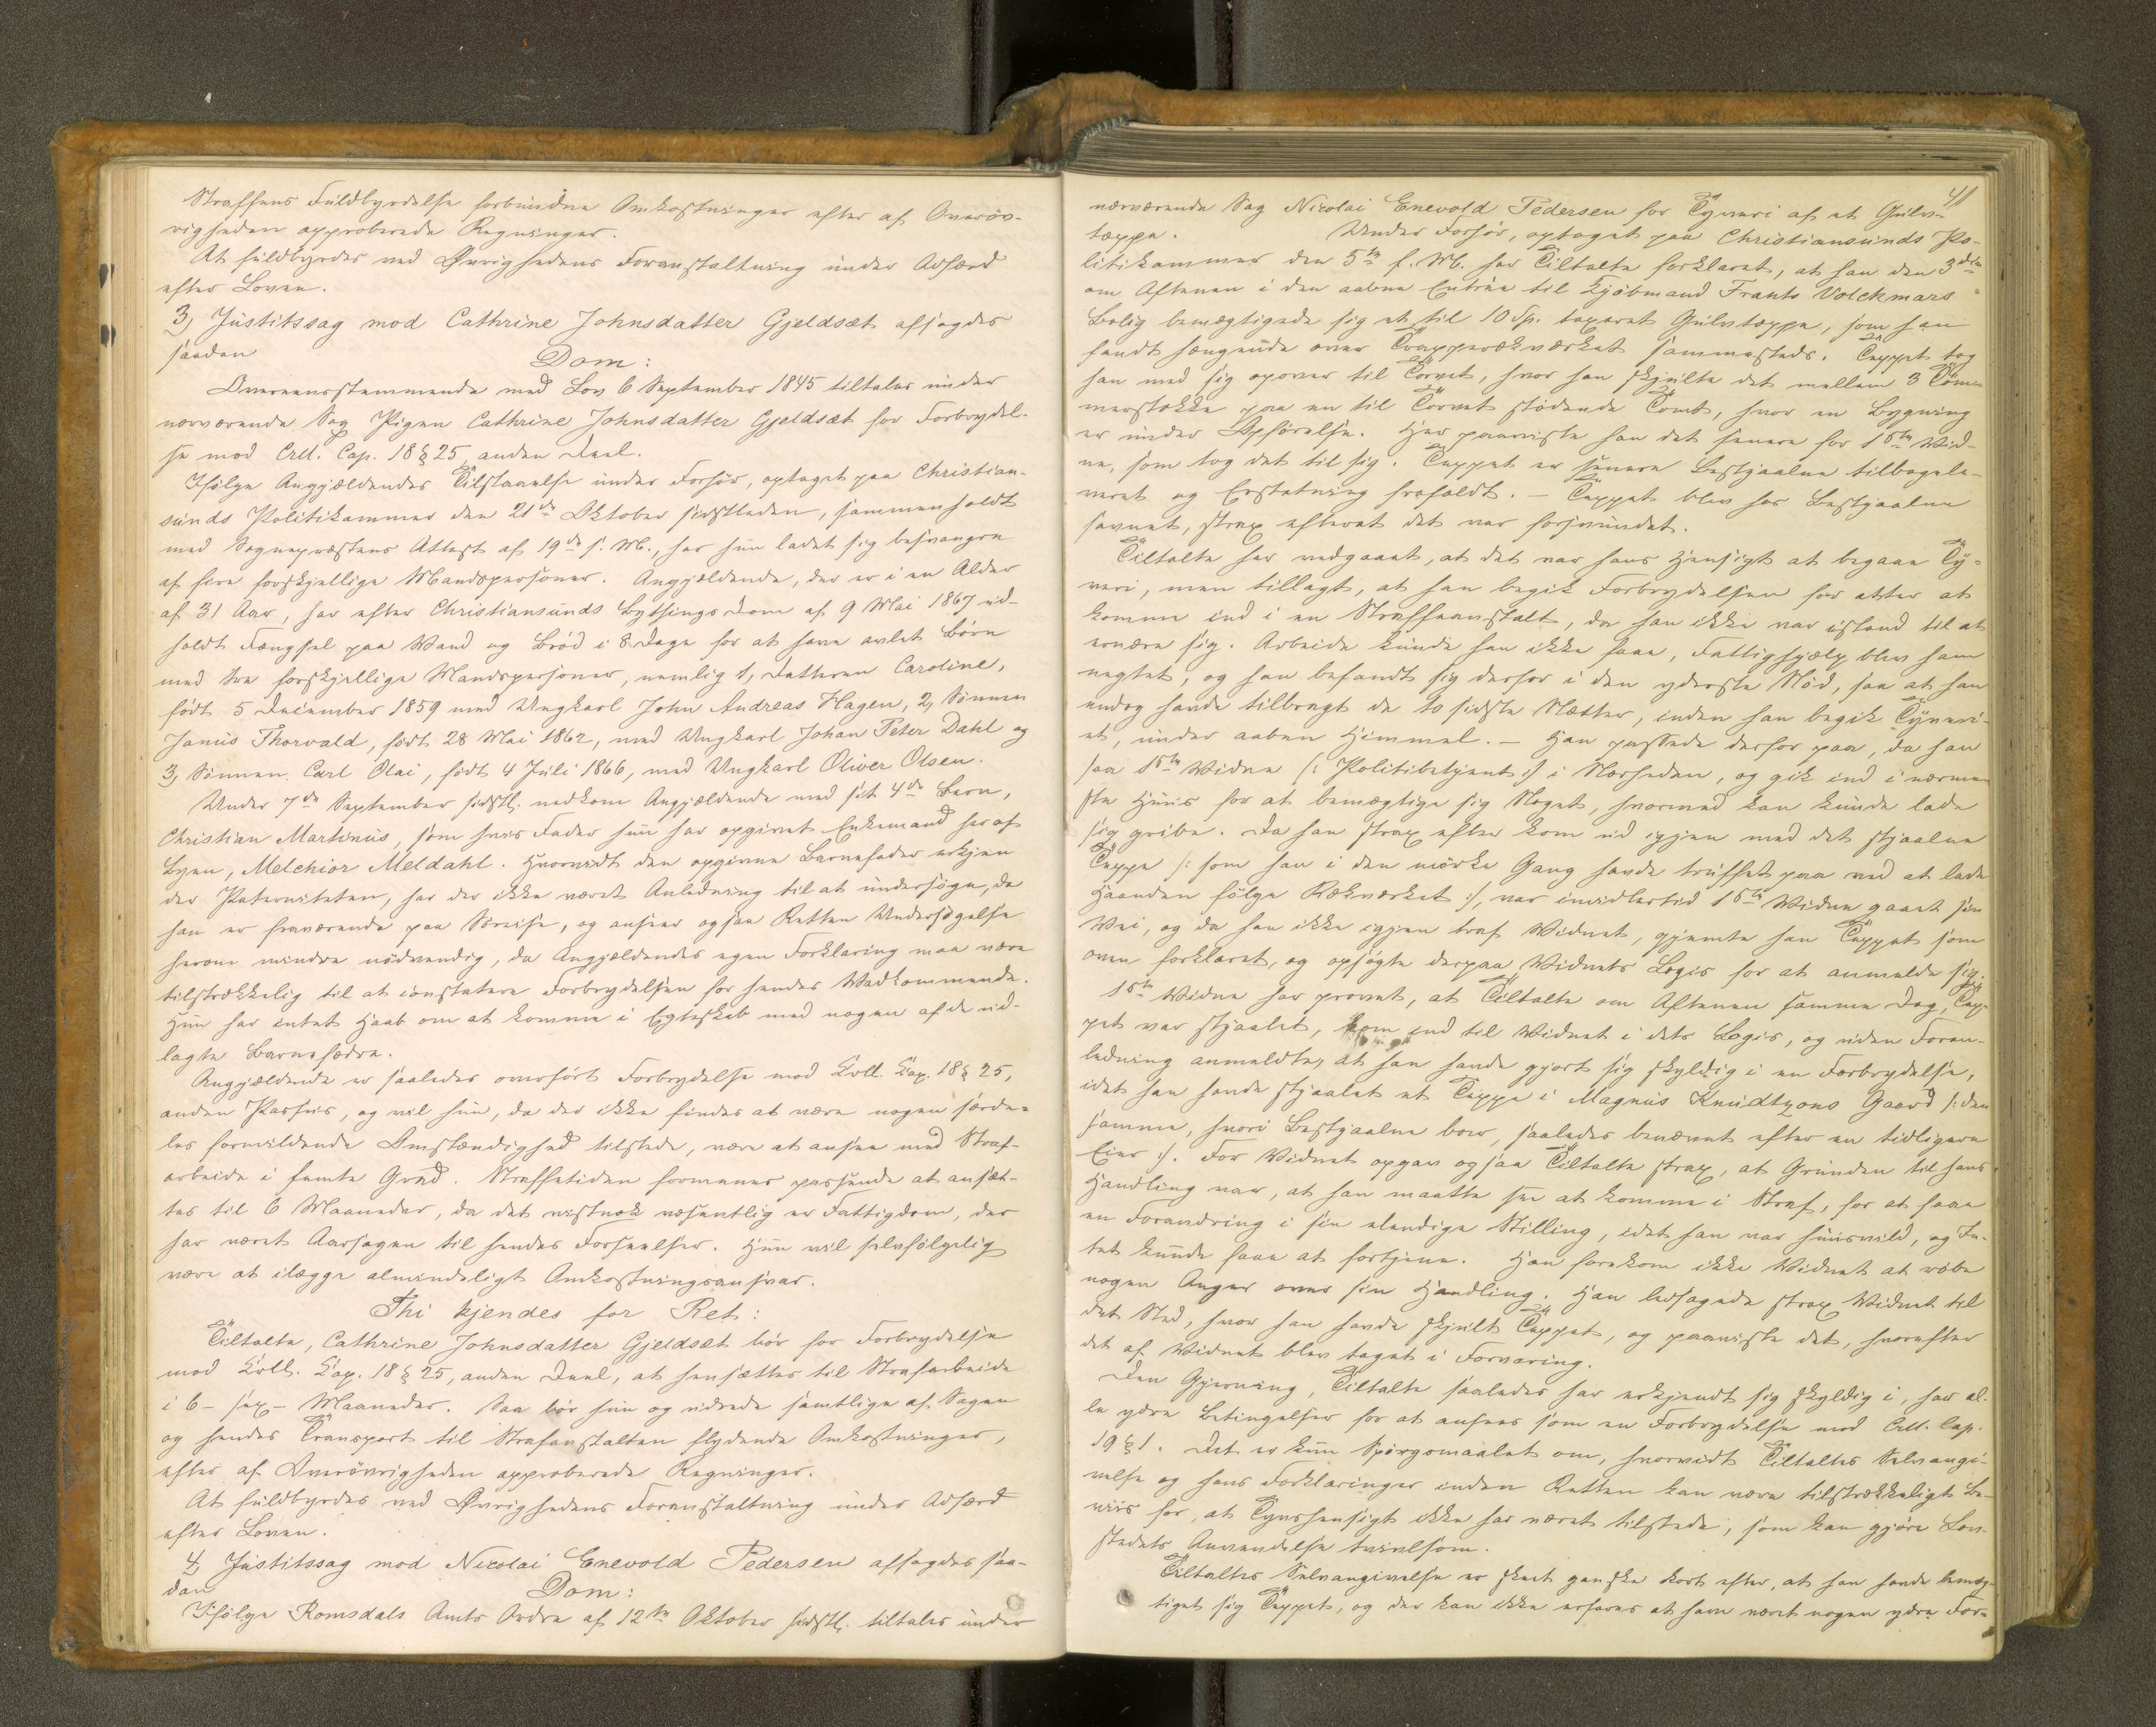 Straffens Fuldbyrdelse forbundne Omkostninger efter af Overöv-
righeden approberede Regninger.
At fuldbyrdes ved Øvrighedens Foranstaltning under Adfærd
efter Loven.
3, Justitssag mod Cathrine Johnsdatter Gjeldsæt afsagdes
saadan
Dom:
Overensstemmende med Lov 6 September 1845 tiltales under
nærværende Sag Pigen Cathrine Johnsdatter Gjeldsæt for Forbrydel-
se mod Crll. Cap. 18 § 25, anden Deel.
Ifölge Angjældendes Tilstaaelse under Forhör, optaget paa Christian-
sunds Politikammer den 21de Oktober sidstleden, sammenholdt
med Sognepræstens Attest af 19de s. M., har hun ladet sig besvangre
af fire forskjellige Mandspersoner. Angjældende, der er i en Alder
af 31 Aar, har efter Christiansunds Bythings Dom af 9 Mai 1867 ud-
holdt Fængsel paa Vand og Bröd i 8 Dage for at have avlet Börn
med tre forskjellige Mandspersoner, nemlig 1, Datteren Caroline,
födt 5 December 1859 med Ungkarl John Andreas Hagen, 2, Sönnen
Janus Thorvald, födt 28 Mai 1862, med Ungkarl Johan Peter Dahl og
3, Sönnen Carl Olai, födt 4 Juli 1866, med Ungkarl Oliver Olsen.
Under 7de September sidstl. nedkom Angjældende med sit 4de Barn,
Christian Martinus, som hvis Fader hun har opgivet Enkemand her af
Byen, Melchior Meldahl. Hvorvidt den opgivne Barnefader erkjen
der Paterniteten, har der ikke været Anledning til at undersöge, da
han er fraværende paa Söreise, og anseer ogsaa Retten Undersögelse
herom mindre nödvendig, da Angjældendes egen Forklaring maa være
tilstrækkelig til at constatere Forbrydelsen for hendes Vedkommende.
Hun har intet Haab om at komme i Egteskab med nogen af de ud-
lagte Barnefædre.
Angjældende er saaledes overfört Forbrydelse mod Crll. Cap. 18 § 25,
anden Passus, og vil hun, da der ikke findes at være nogen særde-
les formildende Omstændighed tilstede, være at ansee med Straf-
arbeide i femte Grad. Straffetiden formenes passende at ansæt-
tes til 6 Maaneder, da det vistnok væsentlig er Fattigdom, der
har været Aarsagen til hendes Forseelser. Hun vil selvfölgelig
være at ilægge almindeligt Omkostningsansvar.
Thi kjendes for Ret:
Tiltalte, Cathrine Johnsdatter Gjeldsæt bör for Forbrydelse
mod Crll. Cap. 18 § 25, anden Deel, at hensættes til Strafarbeide
i 6 – sex – Maaneder. Saa bör hun og udrede samtlige af Sagen
og hendes Transport til Strafanstalten flydende Omkostninger,
efter af Overövrigheden approberede Regninger.
At fuldbyrdes ved Øvrighedens Foranstaltning under Adfærd
efter Loven.
4, Justitssag mod Nicolai Enevold Pedersen afsagdes saa-
dan
Dom:
Ifölge Romsdals Amts Ordre af 12te Oktober sidstl. tiltales under
41
nærværende Sag Nicolai Enevold Pedersen for Tyveri af et Gulv-
tæppe. Under Forhör, optaget paa Christiansunds Po-
litikammer den 5te f. M. har Tiltalte forklaret, at han den 3die
om Aftenen i den aabne Entrée til Kjöbmand Frants Volckmars
Bolig bemægtigede sig et til 10 Sp. taxeret Gulvtæppe, som han
fandt hængende over Trapperækværket sammesteds. Tæppet tog
han med sig opover til Torvet, hvor han skjulte det mellem 3 Töm-
merstokke paa en til Torvet stödende Tomt, hvor en Bygning
er under Opförelse. Her paaviste han det senere for 1ste Vid-
ne, som tog det til sig. Tæppet er senere Bestjaalne tilbagele-
veret og Erstatning frafaldt. – Tæppet blev hos Bestjaalne
savnet, strax efterat det var forsvundet.
Tiltalte har vedgaaet, at det var hans Hensigt at begaae Ty-
veri, men tillagt, at han begik Forbrydelsen for atter at
komme ind i en Straffeanstalt, da han ikke var istand til at
ernære sig. Arbeide kunde han ikke faae, Fattighjælp blev ham
negtet, og han befandt sig derfor i den yderste Nöd, saa at han
endog havde tilbragt de to sidste Nætter, inden han begik Tyveri-
et, under aaben Himmel. – Han passede derfor paa, da han
saa 1ste Vidne (: Politibetjent :) i Nærheden, og gik ind i nærme
ste Huus for at bemægtige sig Noget, hvormed han kunde lade
sig gribe. Da han strax efter kom ud igjen med det stjaalne
Tæppe (: som han i den mörke Gang havde truffet paa ved at lade
Haanden fölge Rækværket :), var imidlertid 1ste Vidne gaaet sin
Vei, og da han ikke igjen traf Vidnet, gjemte han Tæppet som
oven forklaret, og opsögte derpaa Vidnets Logis for at anmelde sig.
1ste Vidne har provet, at Tiltalte om Aftenen samme Dag, Tæp-
pet var stjaalet, kom ind til Vidnet i dets Logis, og uden Foran-
ledning anmeldte, at han havde gjort sig skyldig i en Forbrydelse,
idet han havde stjaalet et Tæppe i Magnus Knudtzons Gaard (: den
samme, hvori Bestjaalne boer, saaledes benævnt efter en tidligere
Eier :). For Vidnet opgav ogsaa Tiltalte strax, at Grunden til hans
Handling var, at han maatte see at komme i Straf, for at faae
en Forandring i sin elendige Stilling, idet han var huusvild, og In-
tet kunde faae at fortjene. Han forekom ikke Vidnet at röbe
nogen Anger over sin Handling. Han ledsagede strax Vidnet til
det Sted, hvor han havde skjult Tæppet, og paaviste det, hvorefter
det af Vidnet blev taget i Forvaring.
Den Gjerning, Tiltalte saaledes har erkjendt sig skyldig i, har al-
le ydre Betingelser for at ansees som en Forbrydelse mod Crll. Cap.
19 § 1. Det er kun Spörgsmaalet om, hvorvidt Tiltaltes Selvangi-
velse og hans Forklaringer inden Retten kan være tilstrækkeligt Be-
viis for, at Tyvshensigt ikke har været tilstede, som kan gjöre Lov-
stedets Anvendelse tvivlsom.
Tiltaltes Selvangivelse er skeet ganske kort efter, at han havde bemæg-
tiget sig Tæppet, og der kan ikke erfares at have været nogen ydre For-